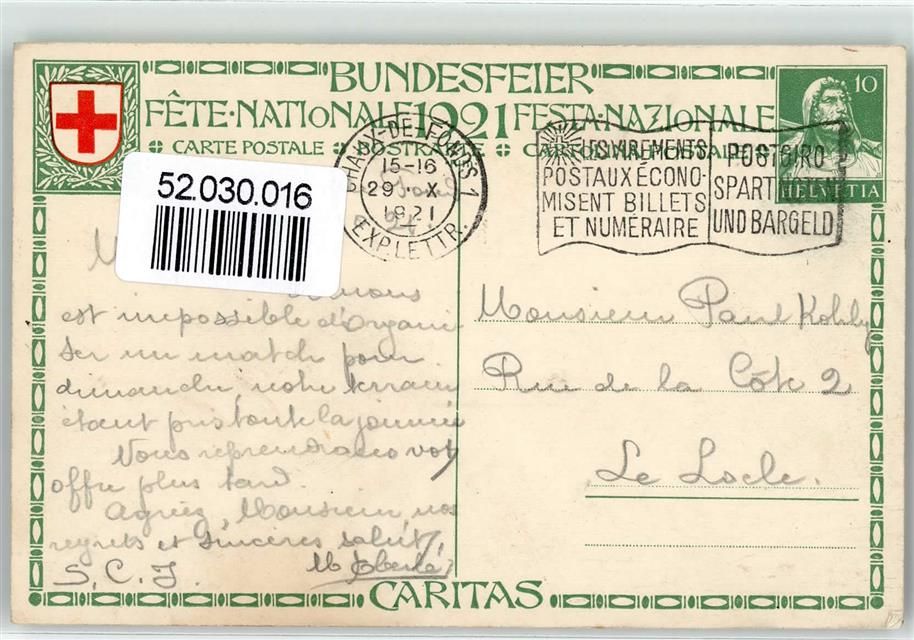 BUNDESFEIER
FÊTE·NATIONALE 1921 FESTA·NAZIONALE
CARTE POSTALE
10
HELVETIA
CHAUX-DE-FONDS 1
15-16
29 X
1921
EXP. LETTR.
LES VIREMENTS
POSTAUX ÉCONO-
MISENT BILLETS
ET NUMÉRAIRE
POSTGIRO
SPART
UND BARGELD
52.030.016
nous
est impossible d'organi
ser un match pour
dimanche notre terrain
étant pris toute la journée
Nous reprendrons votre
offre plus tard.
Agréez, Monsieur nos
regrets et sincères salut
S. C. J.
Monsieur Paul Kohly
Rue de la Côte 2
Le Locle.
CARITAS